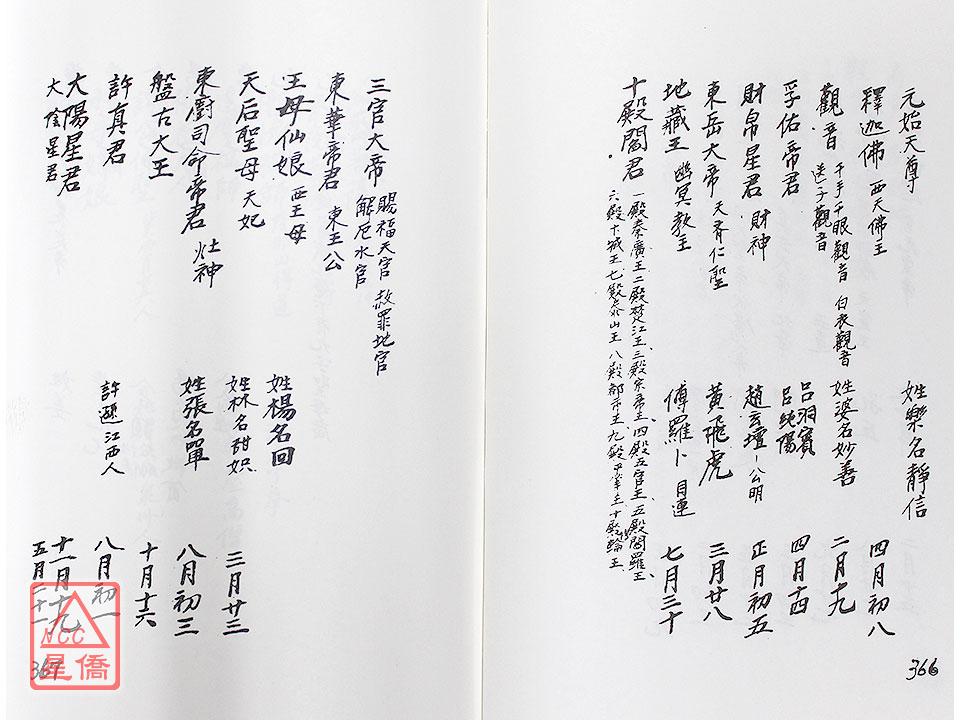 元始天尊 姓樂名靜信
釋迦佛 西天佛王 四月初八
觀音 千手千眼觀音 白衣觀音 送子觀音 姓婆名妙善 二月十九
孚佑帝君 呂洞賓 呂純陽 四月十四
財帛星君 財神 趙玄壇-公明 正月初五
東岳大帝 天齊仁聖 黃飛虎 三月廿八
地藏王 幽冥教主 傅羅卜 目連 七月三十
十殿閻君 一殿秦廣王、二殿楚江王、三殿宋帝王、四殿五官王、五殿閻羅王、
六殿卞城王 七殿泰山王 八殿都市王 九殿平等王 十殿轉輪王
366
三官大帝 賜福天官 赦罪地官 解厄水官
東華帝君 東王公
王母仙娘 西王母 姓楊名回
天后聖母 天妃 姓林名甜娘 三月廿三
東廚司命帝君 灶神 姓張名單 八月初三
盤古大王 十月十六
許真君 許遜江西人 八月初一
太陽星君 十一月十九
太陰星君 五月二十一
367
NCC
星僑